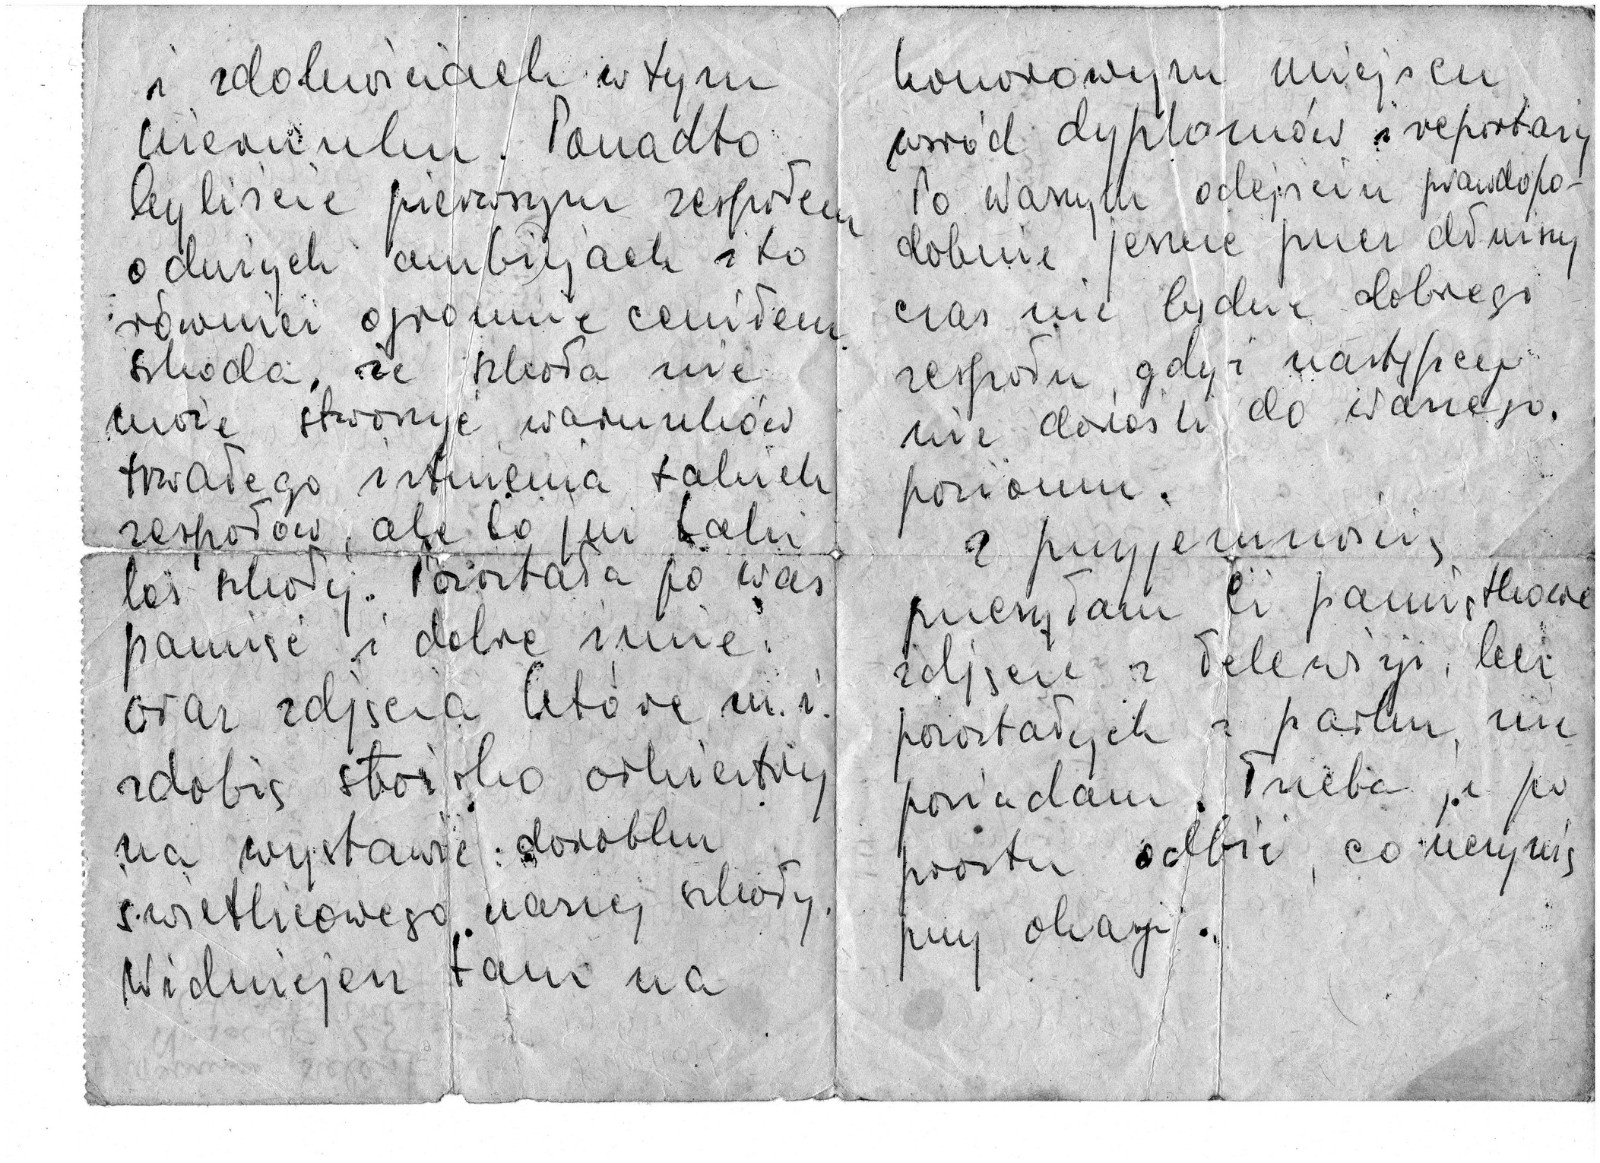 i zdolnościach w tym
kierunku. Ponadto
byliście pierwszym zespołem
o dużych ambicjach i to
również ogromnie ceniłem
szkoda, że szkoła nie
może stworzyć warunków
trwałego istnienia takich
zespołów, ale to już taki
los szkoły. Pozostała po was
pamięć i dobre imię.
oraz zdjęcia które m.i.
zdobią stoisko orkiestry
na wystawie dorobku
świetlicowego naszej szkoły.
Widniejesz tam na
honorowym miejscu
wśród dyplomów i reportaży
Po waszym odejściu prawdopo-
dobnie jeszcze przez dłuższy
czas nie będzie dobrego
zespołu gdyż następcy
nie dorośli do waszego.
poziomu.
z przyjemnością
przesyłam Ci pamiątkowe
zdjęcie z Telewizji, lecz
pozostałych z parku, nie
posiadam. Trzeba je po
prostu odbić, co uczynię
przy okazji.